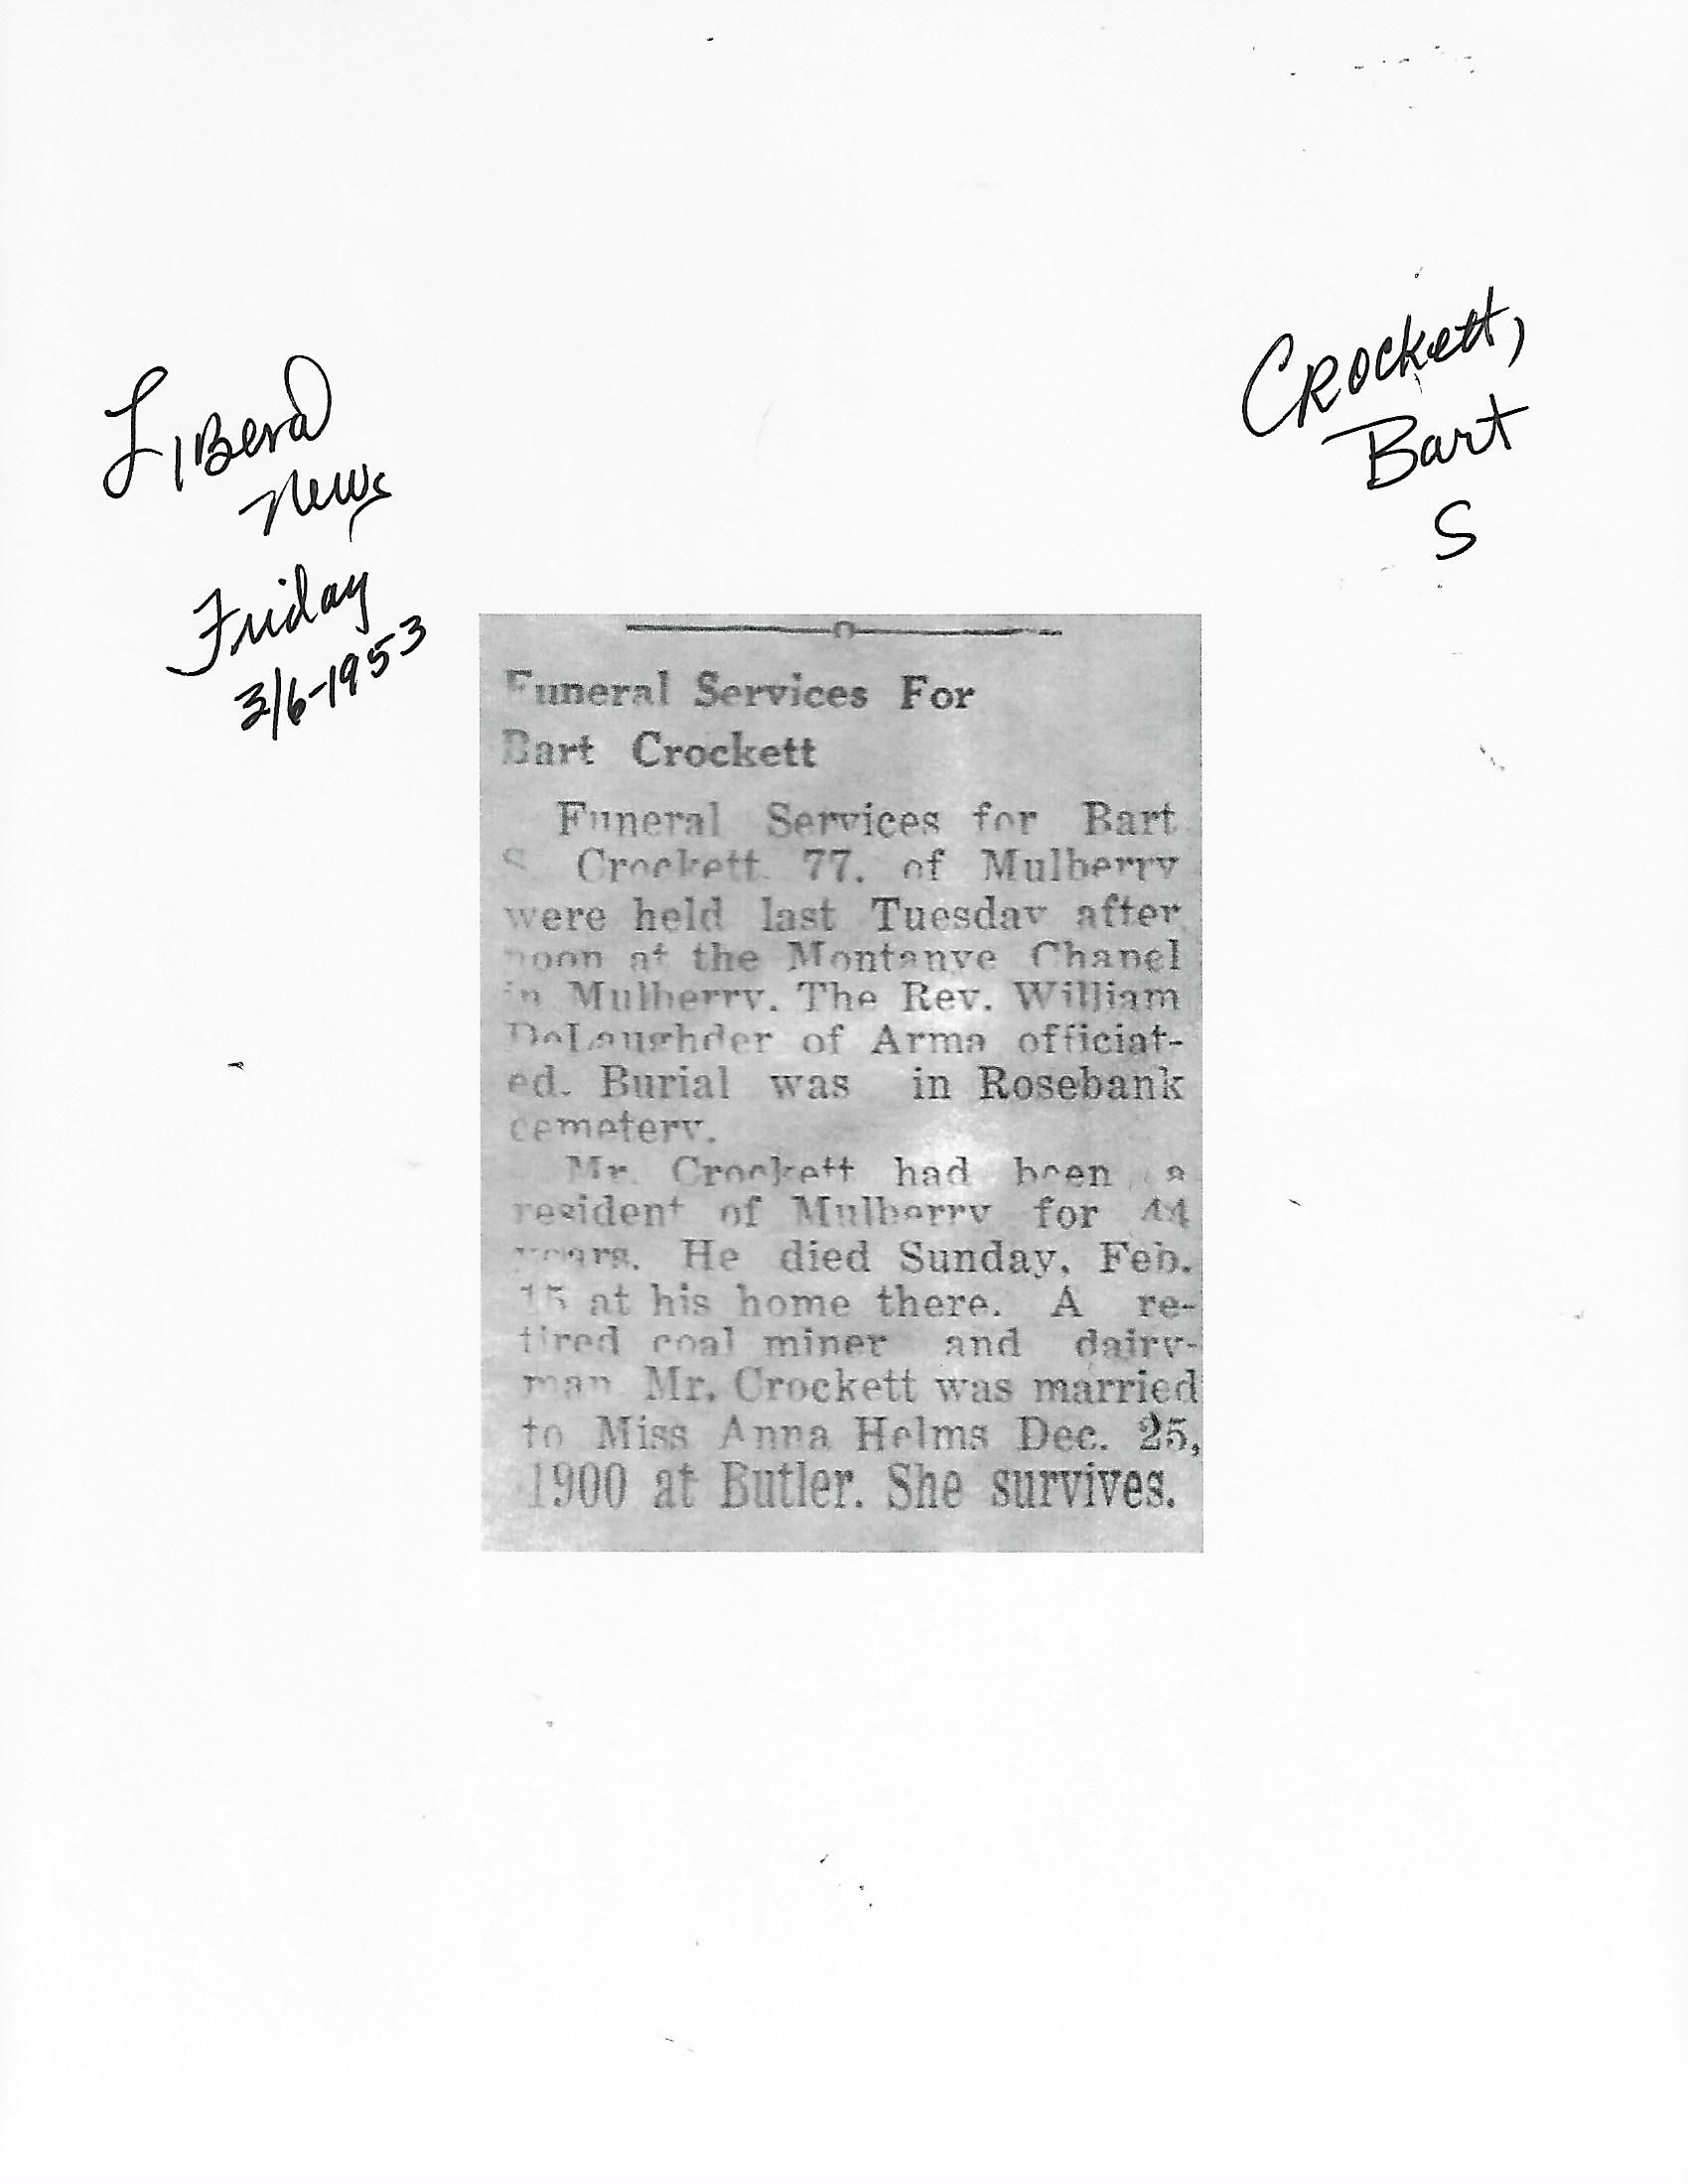 Liberal
News
Friday
3/6-1953
Crockett,
Bart
S
Funeral Services For
Bart Crockett
Funeral Services for Bart
S. Crockett, 77, of Mulberry
were held last Tuesday after
noon at the Montanye Chapel
in Mulberry. The Rev. William
DeLaughder of Arma officiat-
ed. Burial was in Rosebank
cemetery.
Mr. Crockett had been a
resident of Mulberry for 44
years. He died Sunday, Feb.
15 at his home there. A re-
tired coal miner and dairy-
man Mr. Crockett was married
to Miss Anna Helms Dec. 25,
1900 at Butler. She survives.